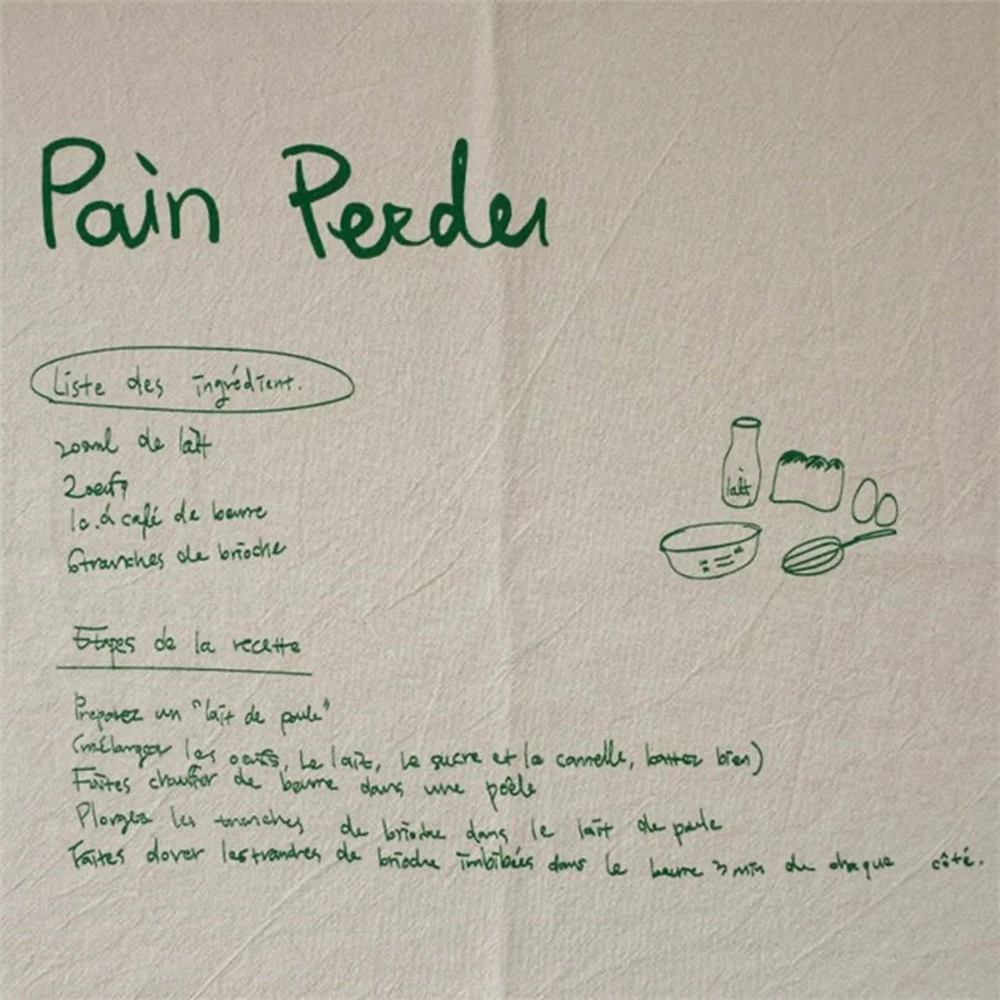 Pain Perdu
Liste des ingrédient.
200ml de lait
2 oeufs
1 c. à café de beurre
6 tranches de brioche
lait
Etapes de la recette
Preparez un "lait de poule"
(mélanger les oeufs, le lait, le sucre et la cannelle, battez bien)
Faites chauffer de beurre dans une poêle
Plongez les tranches de brioche dans le lait de poule
Faites dorer les tranches de brioche imbibées dans le beurre 3 min de chaque côté.